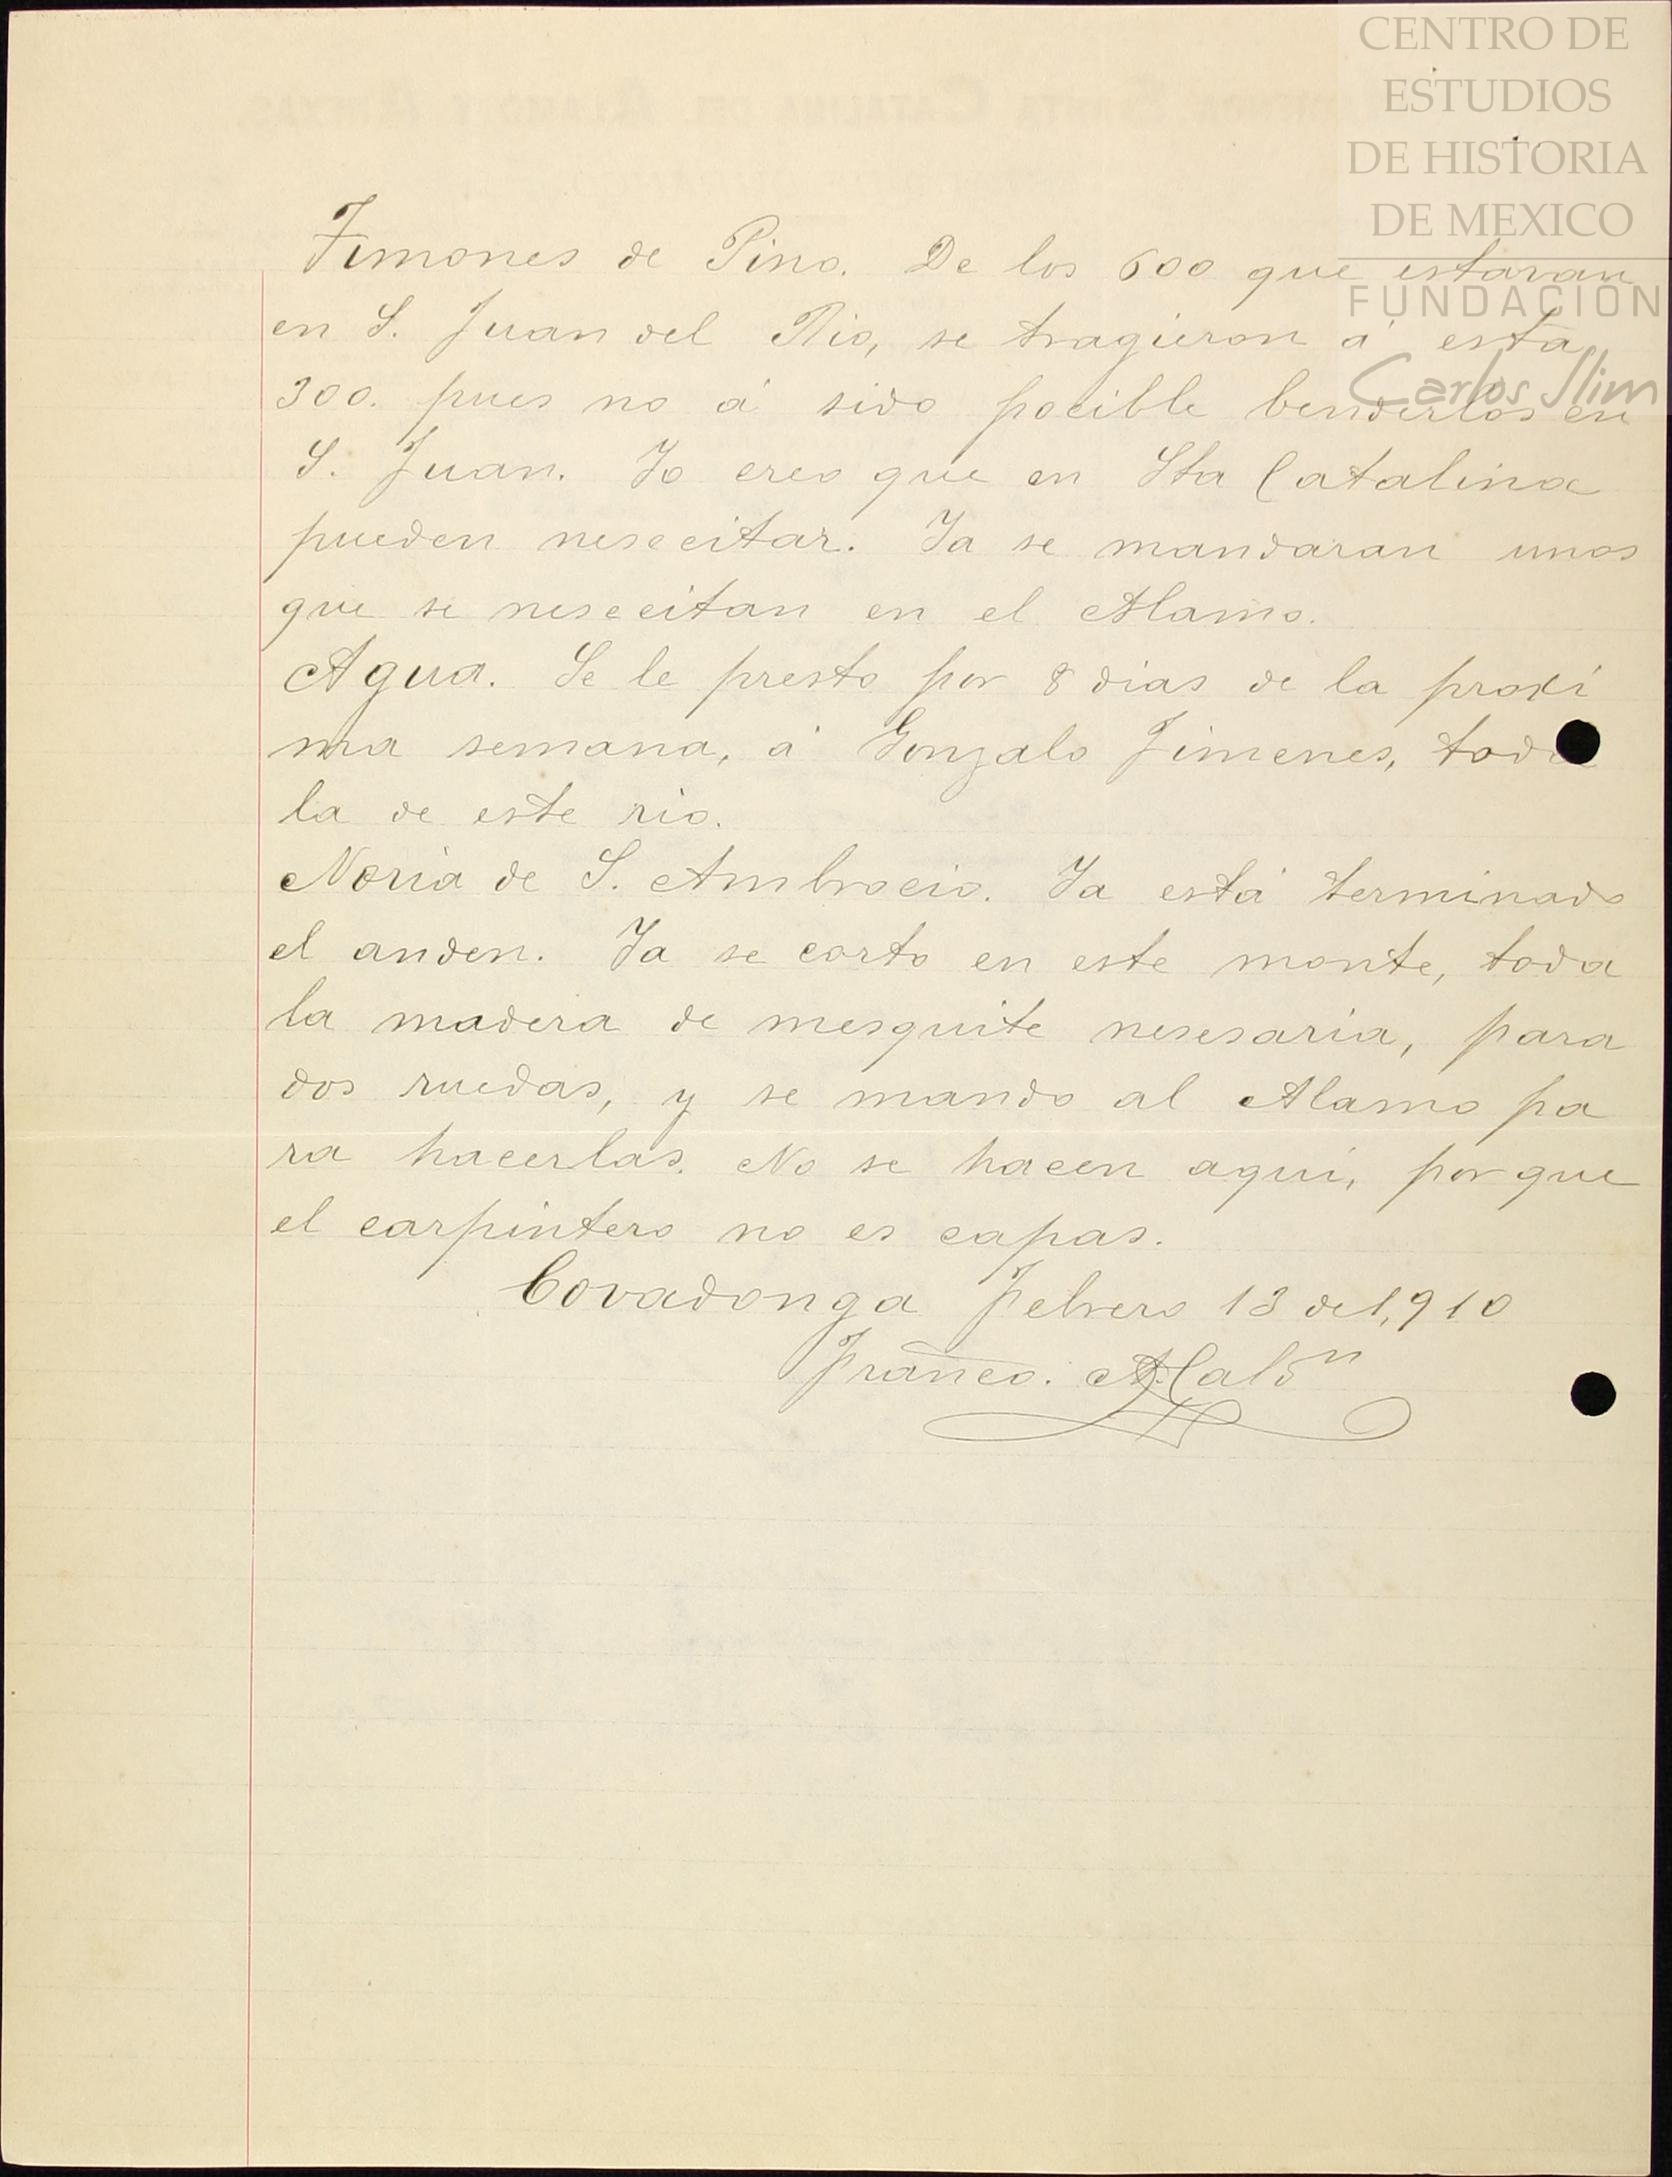 CENTRO DE
ESTUDIOS
DE HISTORIA
DE MEXICO
FUNDACIÓN
Carlos Slim
Timones de Pino. De los 600 que estavan
en S. Juan del Rio, se tragieron á esta
300. pues no á sido pocible benderlos en
S. Juan. Yo creo que en Sta Catalina
pueden nesecitar. Ya se mandaran unos
que se nesecitan en el Alamo.
Agua. Se le presto por 8 dias de la proxi
ma semana, á Gonzalo Jimenes, toda
la de este rio.
Noria de S. Ambrocio. Ya está terminado
el anden. Ya se corto en este monte, toda
la madera de mesquite nesesaria, para
dos ruedas, y se mando al Alamo pa
ra hacerlas. No se hacen aqui, por que
el carpintero no es capas.
Covadonga Febrero 13 de 1,910
Franco. A.